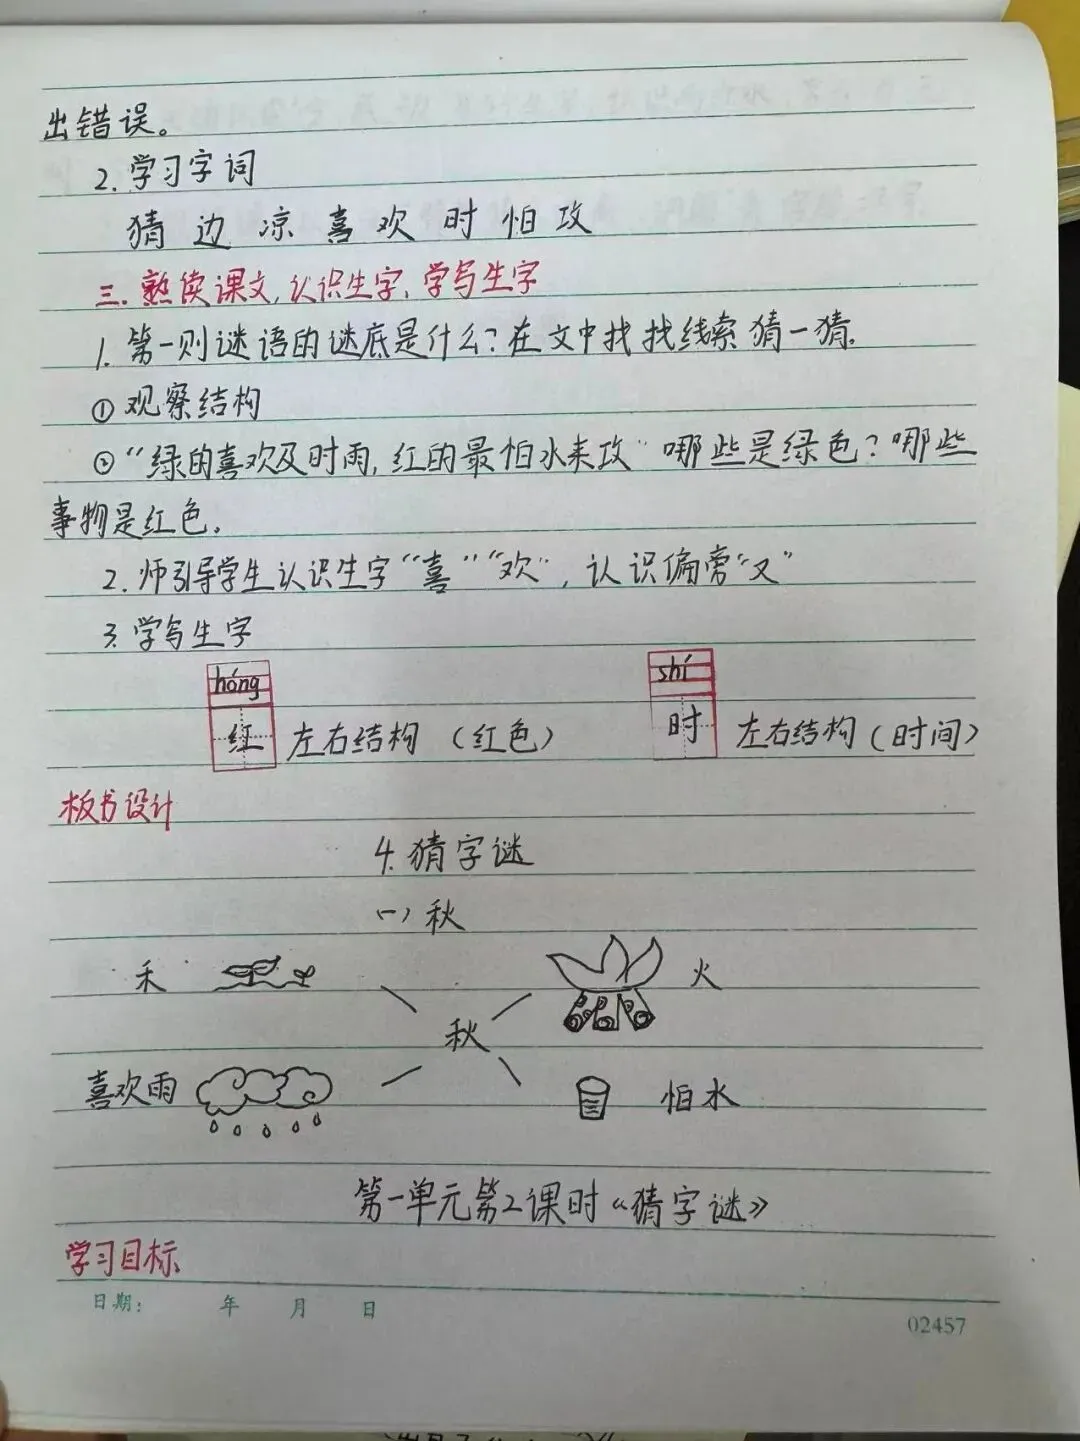 出错误。
2. 学习字词
猜 边 凉 喜 欢 时 怕 攻
三. 熟读课文, 认识生字, 学写生字
1. 第一则谜语的谜底是什么? 在文中找找线索猜一猜.
① 观察结构
② “绿的喜欢及时雨, 红的最怕水来攻” 哪些是绿色? 哪些
事物是红色.
2. 师引导学生认识生字“喜”“欢”, 认识偏旁“又”
3. 学写生字
hóng shí
红 左右结构 (红色) 时 左右结构 (时间)
板书设计
4. 猜字谜
(一) 秋
禾 火
秋
喜欢雨 怕水
第一单元第2课时《猜字谜》
学习目标
日期: 年 月 日
02457